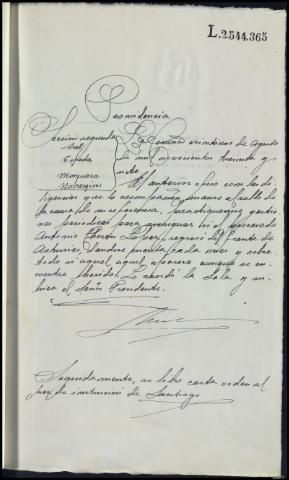 L.2544.365
Providencia
Sección segunda
Sres
Espada
Mosquera
Navarques
La Coruña veintiuno de Agosto
de mil novecientos treinta y
siete
El anterior oficio con las di-
ligencias que lo acompañan, únanse al rollo de
la causa de su referencia, practíquense gestio-
nes periódicas para averiguar si el procesado
Antonio López, regresó del frente de
Asturias, dándose cuenta cada mes y sobre
todo si aquel aparece aunque se en-
cuentre herido. Lo acordó la Sala y ru-
brica el Señor Presidente.
Seguidamente, se libró carta orden al
Juez de instrucción de Santiago